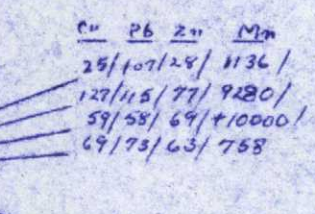 Cu Pb Zn Mn
25/107/28/1136/
127/115/77/9280/
59/58/69/+10000/
69/73/63/758